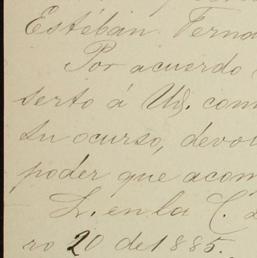 Estéban Ferna
Por acuerdo
serto á Ud. com
su ocurso, devo
poder que acom
L. en la C. d
ro 20 de 1885.